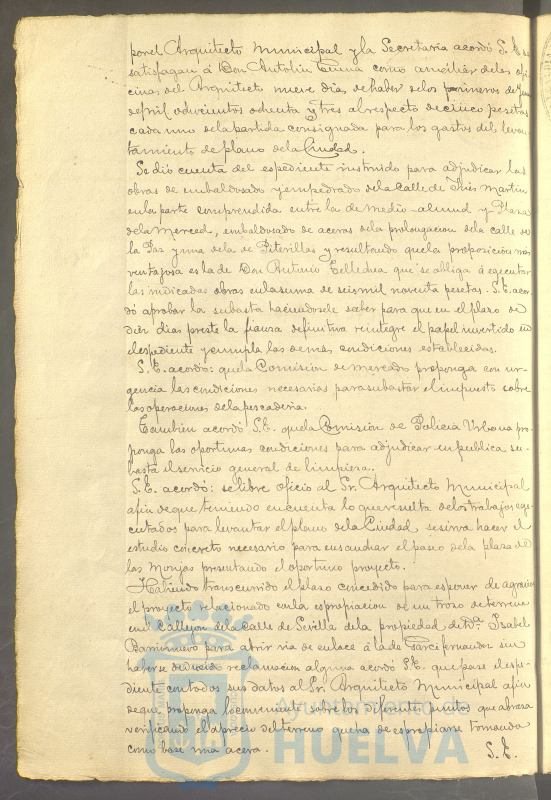 por el Arquitecto Municipal y la Secretaría acordó S. E. se
satisfagan á Don Antolin como auxiliar de las ofi
cinas del Arquitecto nueve dias de haber de los primeros de
de mil ochocientos ochenta y tres al respecto de cinco pesetas
cada uno de la partida consignada para los gastos del levan-
tamiento de plano de la Ciudad.
Se dio cuenta del espediente instruido para adjudicar las
obras de embaldosado y empedrado de la calle de Martin
en la parte comprendida entre la de Medio-almud y Plaza
de la Merced, embaldosado de aceras de la prolongacion de la calle de
la Paz y una de la de Peterillas y resultando que la proposicion mas
ventajosa es la de Don Antonio que se obliga á ejecutar
las indicadas obras en la suma de seis mil noventa pesetas. S. E. acor
dó aprobar la subasta haciendosele saber para que en el plazo de
diez dias preste la fianza definitiva reintegre el papel invertido en
el espediente y cumpla las demás condiciones establecidas.
S. E. acordó: que la Comision de Mercado proponga con ur-
gencia las condiciones necesarias para subastar el impuesto sobre
las operaciones de la pescaderia.
Tambien acordó S. E. que la Comision de Policia Urbana pro-
ponga las oportunas condiciones para adjudicar en publica su-
basta el servicio general de limpieza.
S. E. acordó: se libre oficio al Sr. Arquitecto Municipal
afin de que teniendo en cuenta lo que resulta de los trabajos eje-
cutados para levantar el plano de la Ciudad se sirva hacer el
estudio concreto necesario para ensanchar el paseo de la plaza de
las Monjas presentando el oportuno proyecto.
Habiendo transcurrido el plazo concedido para esponer de agravios
el proyecto relacionado con la espropiacion de un trozo de terreno
en el Callejon de la Calle de Sevilla de la propiedad de D.ª Isabel
Barrionuevo para abrir via de enlace á la de Garcifernandez sin
haberse deducido reclamacion alguna acordó S. E. que pase el espe-
diente con todos sus datos al Sr. Arquitecto Municipal afin
de que proponga lo conveniente sobre los diferentes puntos que abraza
verificando el aprecio del terreno que ha de espropiarse tomando
como base una acera.
S. E.
Ayuntamiento de
HUELVA